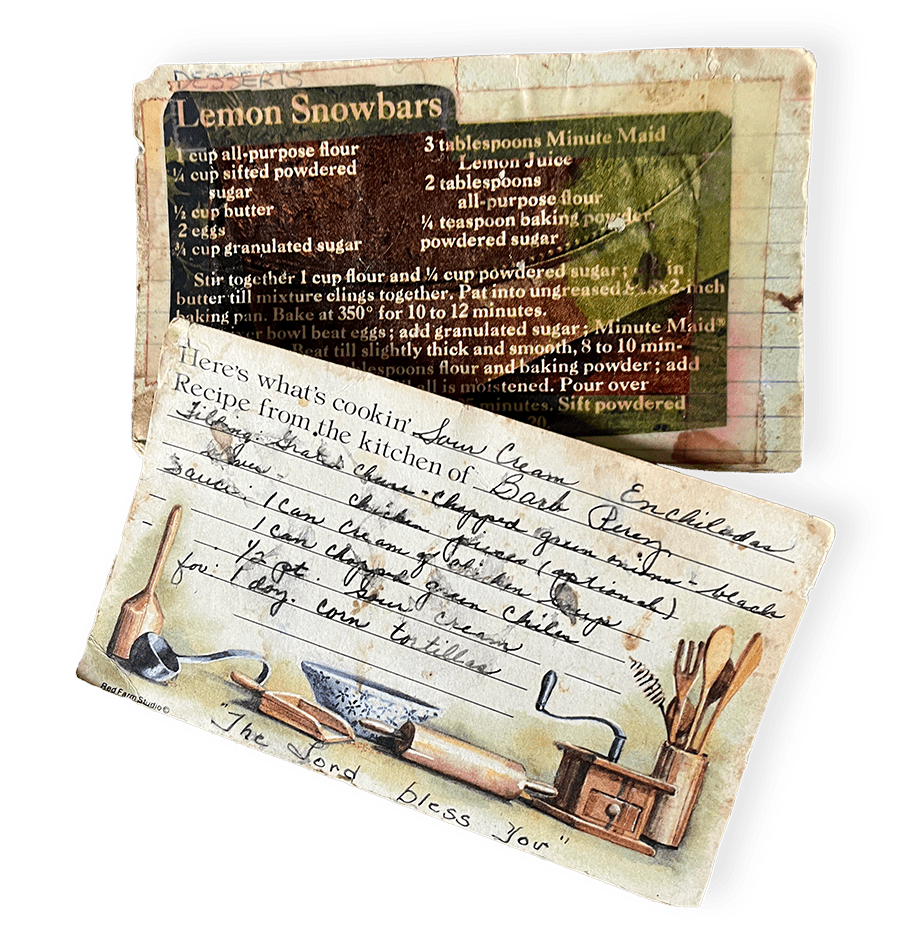 DESSERTS
Lemon Snowbars
1 cup all-purpose flour
¼ cup sifted powdered
sugar
½ cup butter
2 eggs
¾ cup granulated sugar
3 tablespoons Minute Maid
Lemon Juice
2 tablespoons
all-purpose flour
¼ teaspoon baking powder
powdered sugar
Stir together 1 cup flour and ¼ cup powdered sugar; in
butter till mixture clings together. Pat into ungreased x2-inch
baking pan. Bake at 350° for 10 to 12 minutes.
bowl beat eggs; add granulated sugar; Minute Maid®
Beat till slightly thick and smooth, 8 to 10 min-
flour and baking powder; add
all is moistened. Pour over
minutes. Sift powdered
20.
Here's what's cookin' Sour Cream Enchiladas
Recipe from the kitchen of Barb Perez
Filling: Grated cheese - chopped green onions - black
olives - chicken pieces (optional)
Sauce: 1 can cream of chicken soup
1 can chopped green chiles
½ pt. sour cream
for: 1 doz. corn tortillas
Red Farm Studio©
"The Lord bless You"